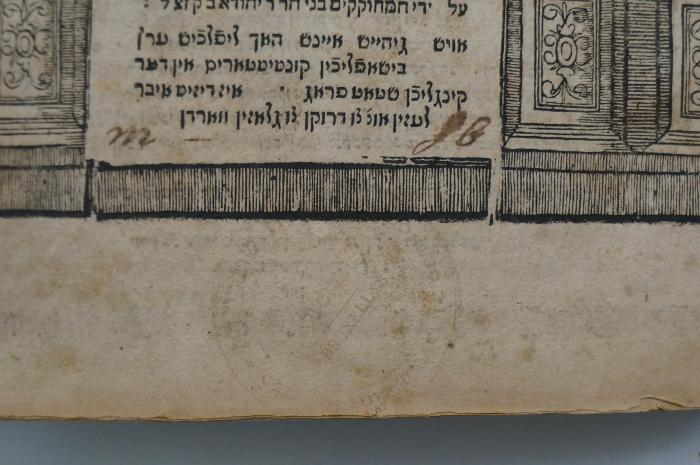 על ידי המחוקקים בני הר״ר יהודא בק זצ״ל :
אויש גיהייש איינש האך ליפליכש ערץ
בישאפליכן קונסישטאריס אין דער
קיניגליכן שטאט פראג איז דיזש איבר
לעזין אונ׳ צו דרוקן צו גלאזין ווארדן
m